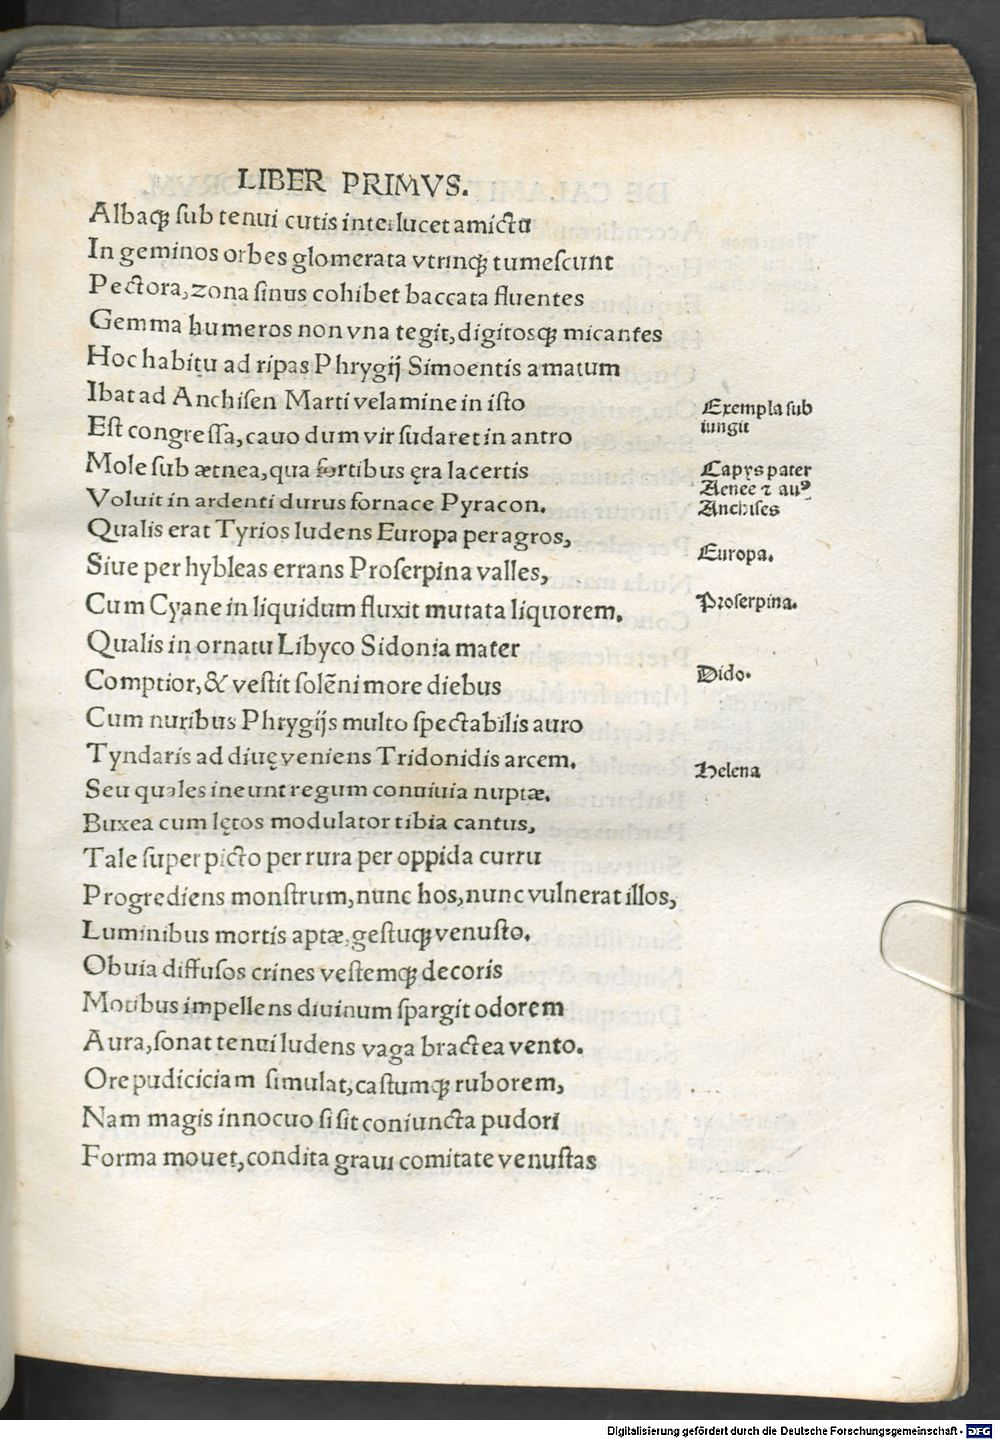 LIBER PRIMVS.
Albaqꝫ ſub tenui cutis interlucet amictu
In geminos orbes glomerata vtrinqꝫ tumeſcunt
Pectora, zona ſinus cohibet baccata fluentes
Gemma humeros non vna tegit, digitosqꝫ micantes
Hoc habitu ad ripas Phrygij Simoentis amatum
Ibat ad Anchiſen Marti velamine in iſto
Exempla ſub
iungit
Eſt congreſſa, cauo dum vir ſudaret in antro
Mole ſub ætnea, qua fortibus ęra lacertis
Capys pater
Aenee ⁊ auꝰ
Voluit in ardenti durus fornace Pyracon.
Anchiſes
Qualis erat Tyrios ludens Europa per agros,
Europa.
Siue per hybleas errans Proſerpina valles,
Cum Cyane in liquidum fluxit mutata liquorem.
Proſerpina.
Qualis in ornatu Libyco Sidonia mater
Comptior, & veſtit ſolēni more diebus
Dido.
Cum nuribus Phrygijs multo ſpectabilis auro
Tyndaris ad diuę veniens Tridonidis arcem.
Helena
Seu quales ineunt regum conuiuia nuptæ.
Buxea cum lętos modulator tibia cantus,
Tale ſuper picto per rura per oppida curru
Progrediens monſtrum, nunc hos, nunc vulnerat illos,
Luminibus mortis aptæ, geſtuqꝫ venuſto.
Obuia diffuſos crines veſtemqꝫ decoris
Motibus impellens diuinum ſpargit odorem
Aura, ſonat tenui ludens vaga bractea vento.
Ore pudiciciam ſimulat, caſtumqꝫ ruborem,
Nam magis innocuo ſi ſit coniuncta pudori
Forma mouet, condita graui comitate venuſtas
Digitalisierung gefördert durch die Deutsche Forschungsgemeinschaft - DFG